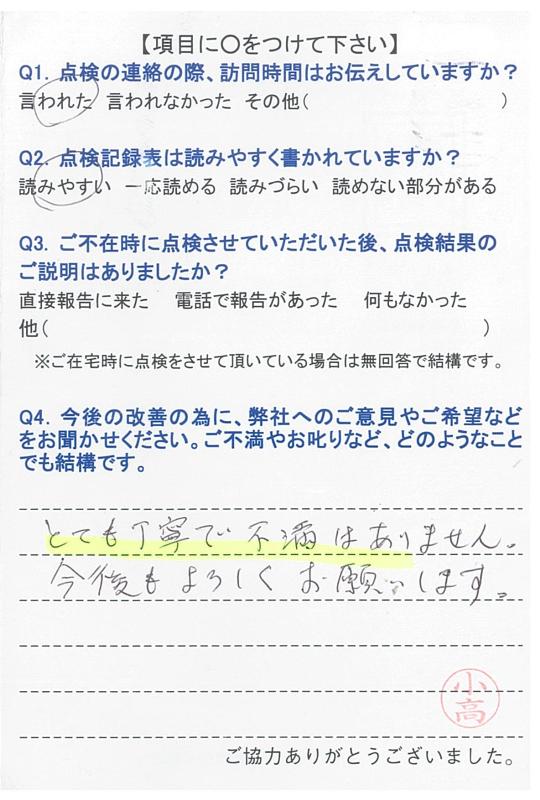 【項目に〇をつけて下さい】
Q1. 点検の連絡の際、訪問時間はお伝えしていますか？
言われた 言われなかった その他( )
Q2. 点検記録表は読みやすく書かれていますか？
読みやすい 一応読める 読みづらい 読めない部分がある
Q3. ご不在時に点検させていただいた後、点検結果の
ご説明はありましたか？
直接報告に来た 電話で報告があった 何もなかった
他( )
※ご在宅時に点検をさせて頂いている場合は無回答で結構です。
Q4. 今後の改善の為に、弊社へのご意見やご希望など
をお聞かせください。ご不満やお叱りなど、どのようなこと
でも結構です。
とても丁寧で不満はありません。
今後もよろしくお願いします。
小高
ご協力ありがとうございました。